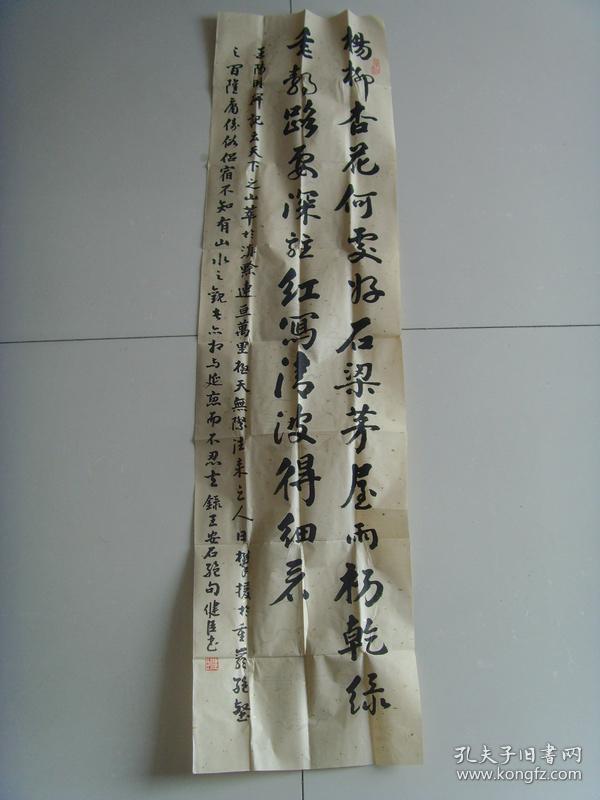 楊柳杏花何處好石梁茅屋雨初乾綠
垂靜路要深駐紅寫清波得細看
王陽明軒記云天下之山萃於滇黔連亘萬里極天無際往來之人日攀援於重巖絕壑
之間雖庸儔俗侶宿不知有山水之觀者亦相與延戀而不忍去 錄王安石絕句 健臣書
孔夫子旧书网
www.kongfz.com